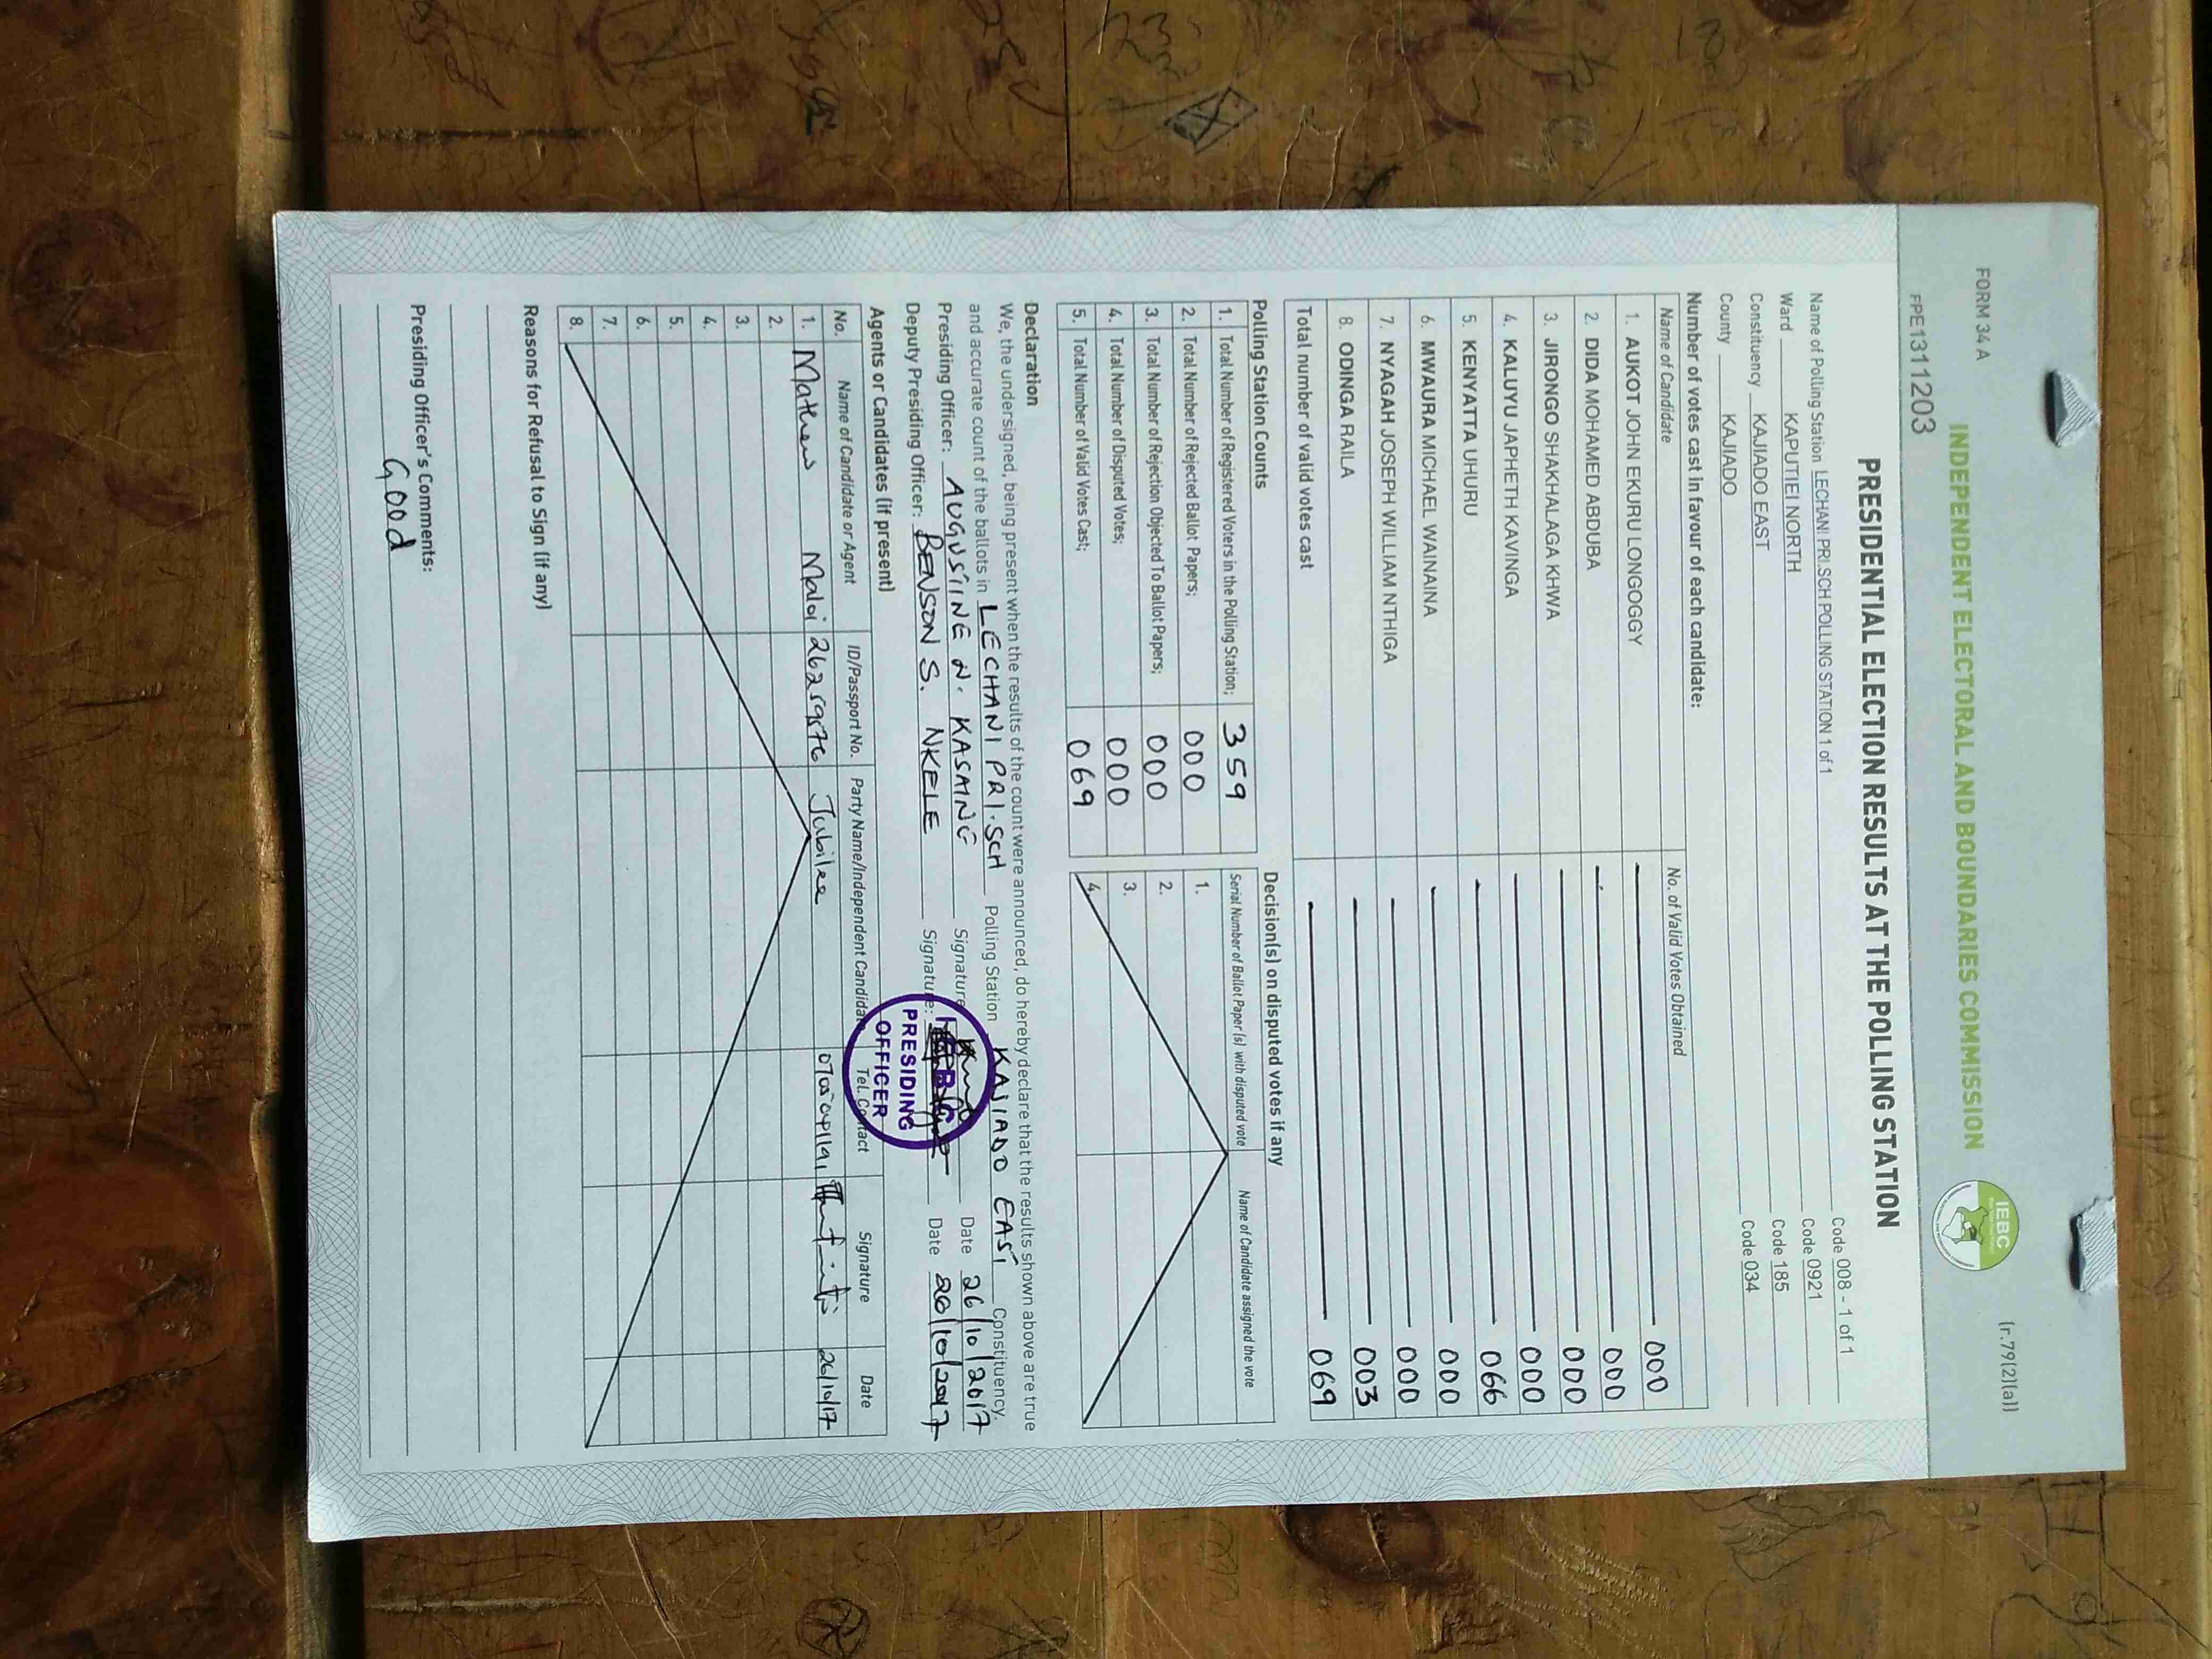 FORM 34 A
(r.79(2)(a))
INDEPENDENT ELECTORAL AND BOUNDARIES COMMISSION
IEBC
FPE1311203
PRESIDENTIAL ELECTION RESULTS AT THE POLLING STATION
Name of Polling Station LECHANI PRI.SCH POLLING STATION 1 of 1 Code 008 - 1 of 1
Ward KAPUTIEI NORTH Code 0921
Constituency KAJIADO EAST Code 185
County KAJIADO Code 034
Number of votes cast in favour of each candidate:
Name of Candidate No. of Valid Votes Obtained
1. AUKOT JOHN EKURU LONGOGGY 000
2. DIDA MOHAMED ABDUBA 000
3. JIRONGO SHAKHALAGA KHWA 000
4. KALUYU JAPHETH KAVINGA 000
5. KENYATTA UHURU 066
6. MWAURA MICHAEL WAINAINA 000
7. NYAGAH JOSEPH WILLIAM NTHIGA 000
8. ODINGA RAILA 003
Total number of valid votes cast 069
Polling Station Counts
1. Total Number of Registered Voters in the Polling Station; 359
2. Total Number of Rejected Ballot Papers; 000
3. Total Number of Rejection Objected To Ballot Papers; 000
4. Total Number of Disputed Votes; 000
5. Total Number of Valid Votes Cast; 069
Decision(s) on disputed votes if any
Serial Number of Ballot Paper (s) with disputed vote Name of Candidate assigned the vote
1.
2.
3.
4.
Declaration
We, the undersigned, being present when the results of the count were announced, do hereby declare that the results shown above are true
and accurate count of the ballots in LECHANI PRI.SCH Polling Station KAJIADO EAST Constituency.
Presiding Officer: AUGUSTINE N. KASAINE Signature Date 26/10/2017
Deputy Presiding Officer: BENSON S. NKELE Signature: Date 26/10/2017
IEBC
PRESIDING
OFFICER
Agents or Candidates (if present)
No. Name of Candidate or Agent ID/Passport No. Party Name/Independent Candidate Tel. Contact Signature Date
1. Mathew Maloi Jubilee 26/10/17
2.
3.
4.
5.
6.
7.
8.
Reasons for Refusal to Sign (if any)
Presiding Officer's Comments:
Good